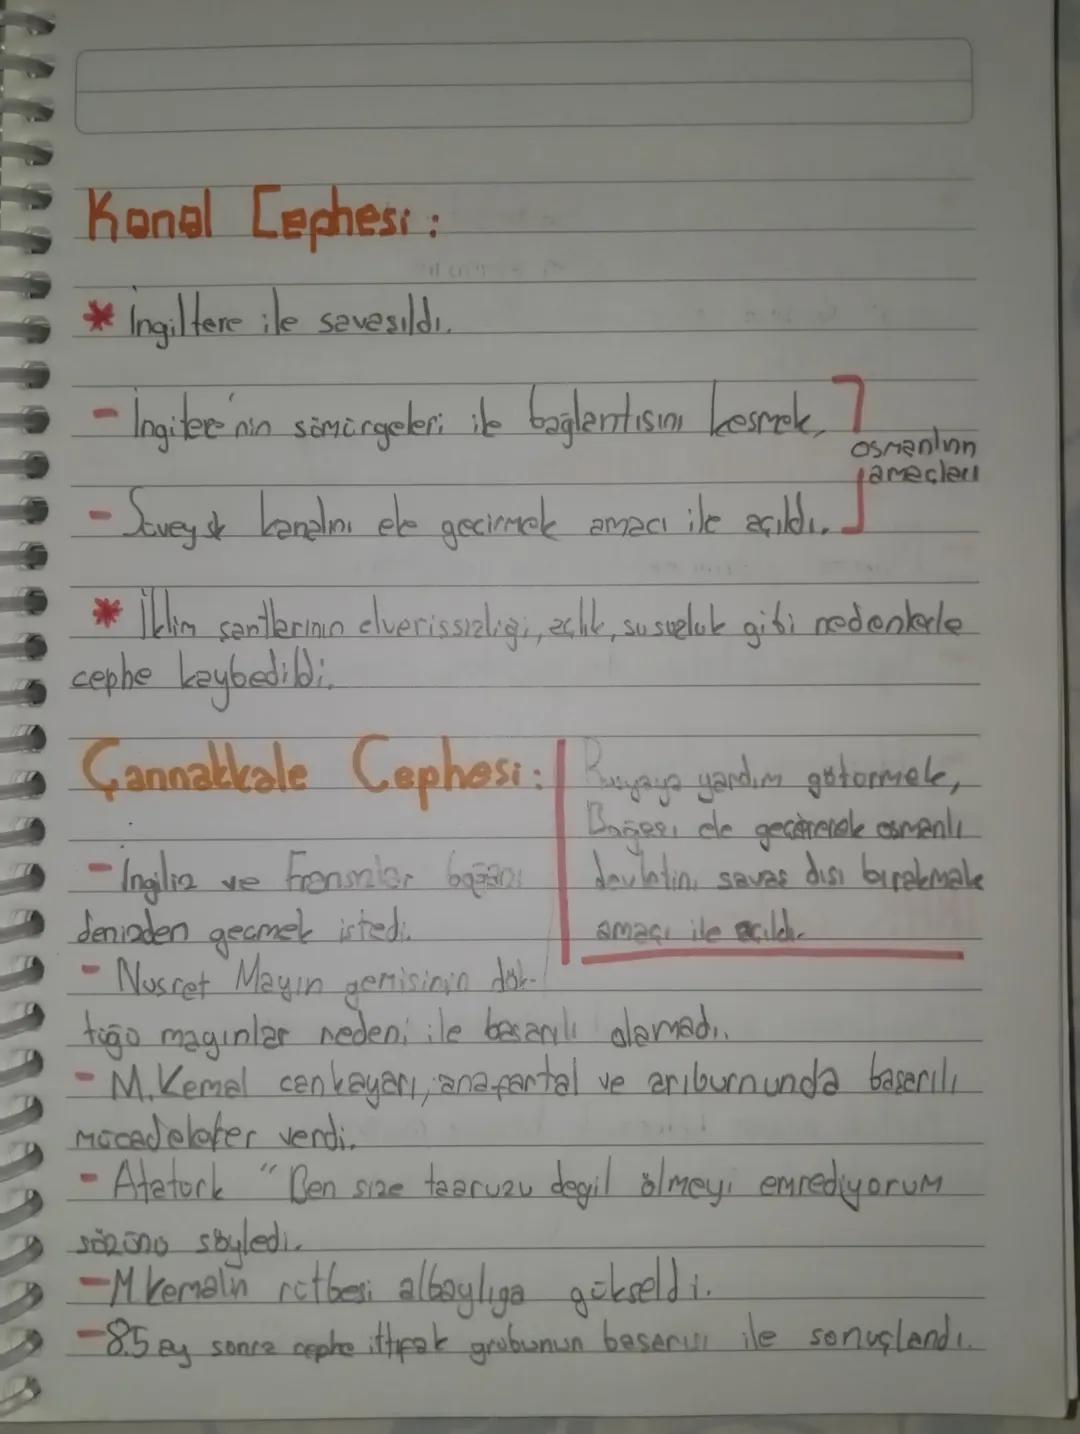 Kanal Cephesi:
* İngiltere ile savaşıldı.
- İngitere'nin sömürgeleri ile bağlantısını kesmek,
osmanlının
amaçları
- Süveyşk kanalını ele geçirmek amacı ile açıldı.
* İklim şartlarının elverişsizliği, açlık, susuzluk gibi nedenlerle
cephe kaybedildi.
Çannakkale Cephesi:
Rusyaya yardım götürmek,
Boğazı ele geçirerek osmanlı
devletini savaş dışı bırakmak
amacı ile açıldı.
- İngiliz ve Fransızlar boğazı
denizden geçmek istedi.
- Nusret Mayın gemisinin dök-
tüğü mayınlar nedeni ile başarılı olamadı.
- M.Kemal conkayarı, anafartal ve arıburnunda başarılı
mücadeleler verdi.
- Atatürk "Ben size taaruzu değil ölmeyi emrediyorum
sözünü söyledi.
- M kemalin rütbesi albaylığa yükseldi.
- 8.5 ay sonra cephe ittifak grubunun başarısı ile sonuçlandı.